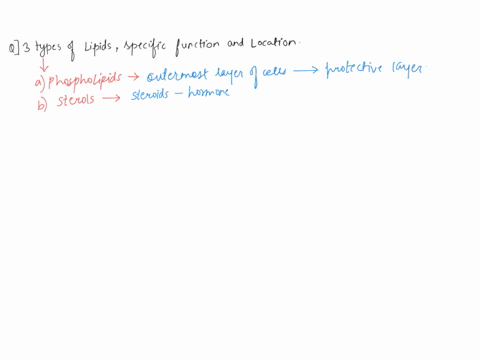 Q] 3 types of Lipids, specific function and Location.
a) Phospholipids → outermost layer of cells → protective layer.
b) sterols → steroids - hormone